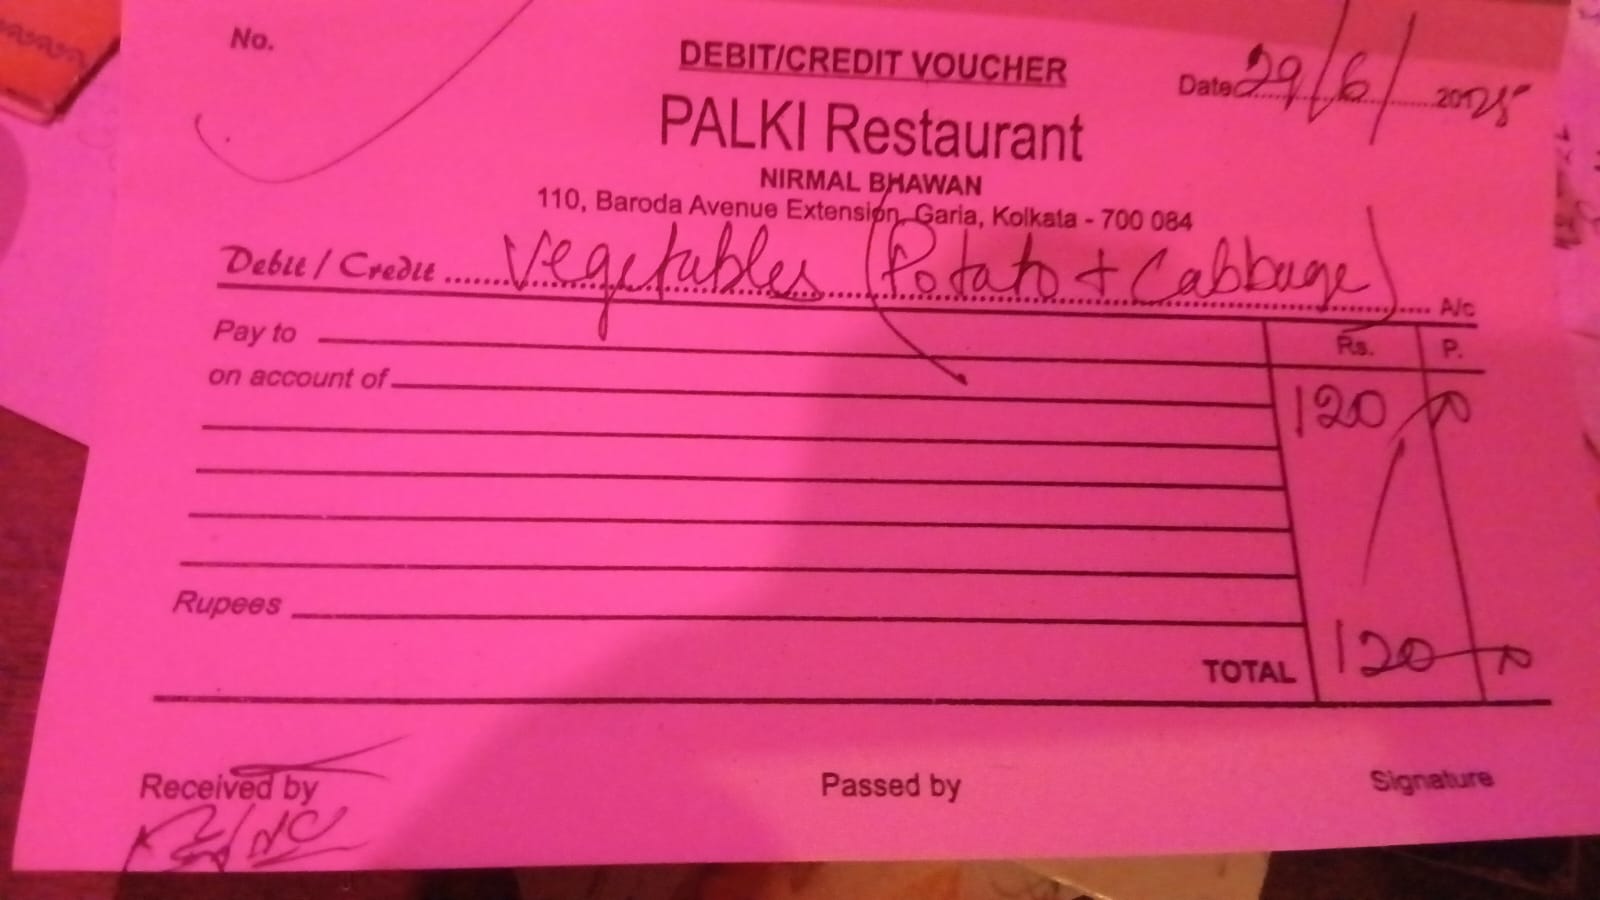 No.
DEBIT/CREDIT VOUCHER
Date 29/6/ 2025
PALKI Restaurant
NIRMAL BHAWAN
110, Baroda Avenue Extension, Garia, Kolkata - 700 084
Debit / Credit Vegetables (Potato + Cabbage) A/c
Pay to Rs. P.
on account of
120
Rupees
TOTAL 120
Received by Passed by Signature